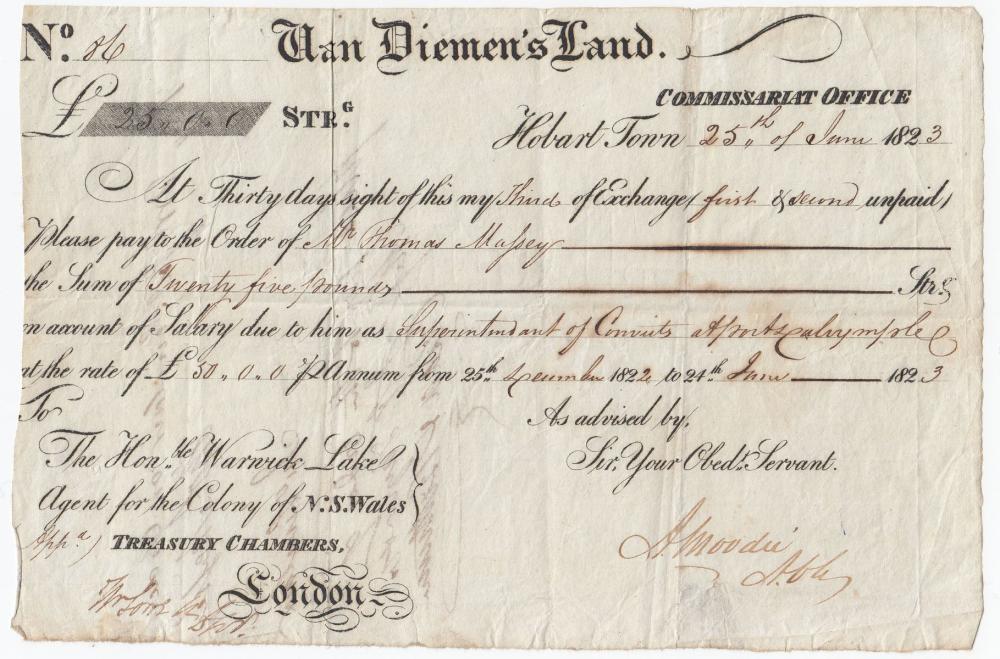 No. 86 Van Diemen's Land.
£ 25 „ 0 „ 0 STR.G
COMMISSARIAT OFFICE
Hobart Town 25„th of June 1823
At Thirty days sight of this my Third of Exchange, first & second unpaid,
Please pay to the Order of Mr Thomas Massey
the Sum of Twenty five pounds Strg
on account of Salary due to him as Superintendant of Convicts at port Dalrymple
at the rate of £ 50 „ 0 „ 0 P Annum from 25th December 1822 to 24th June 1823
To As advised by,
The Hon.ble Warwick Lake Sir, Your Obedt. Servant.
Agent for the Colony of N.S. Wales
Appd) TREASURY CHAMBERS, A Moodie
London A.C.G